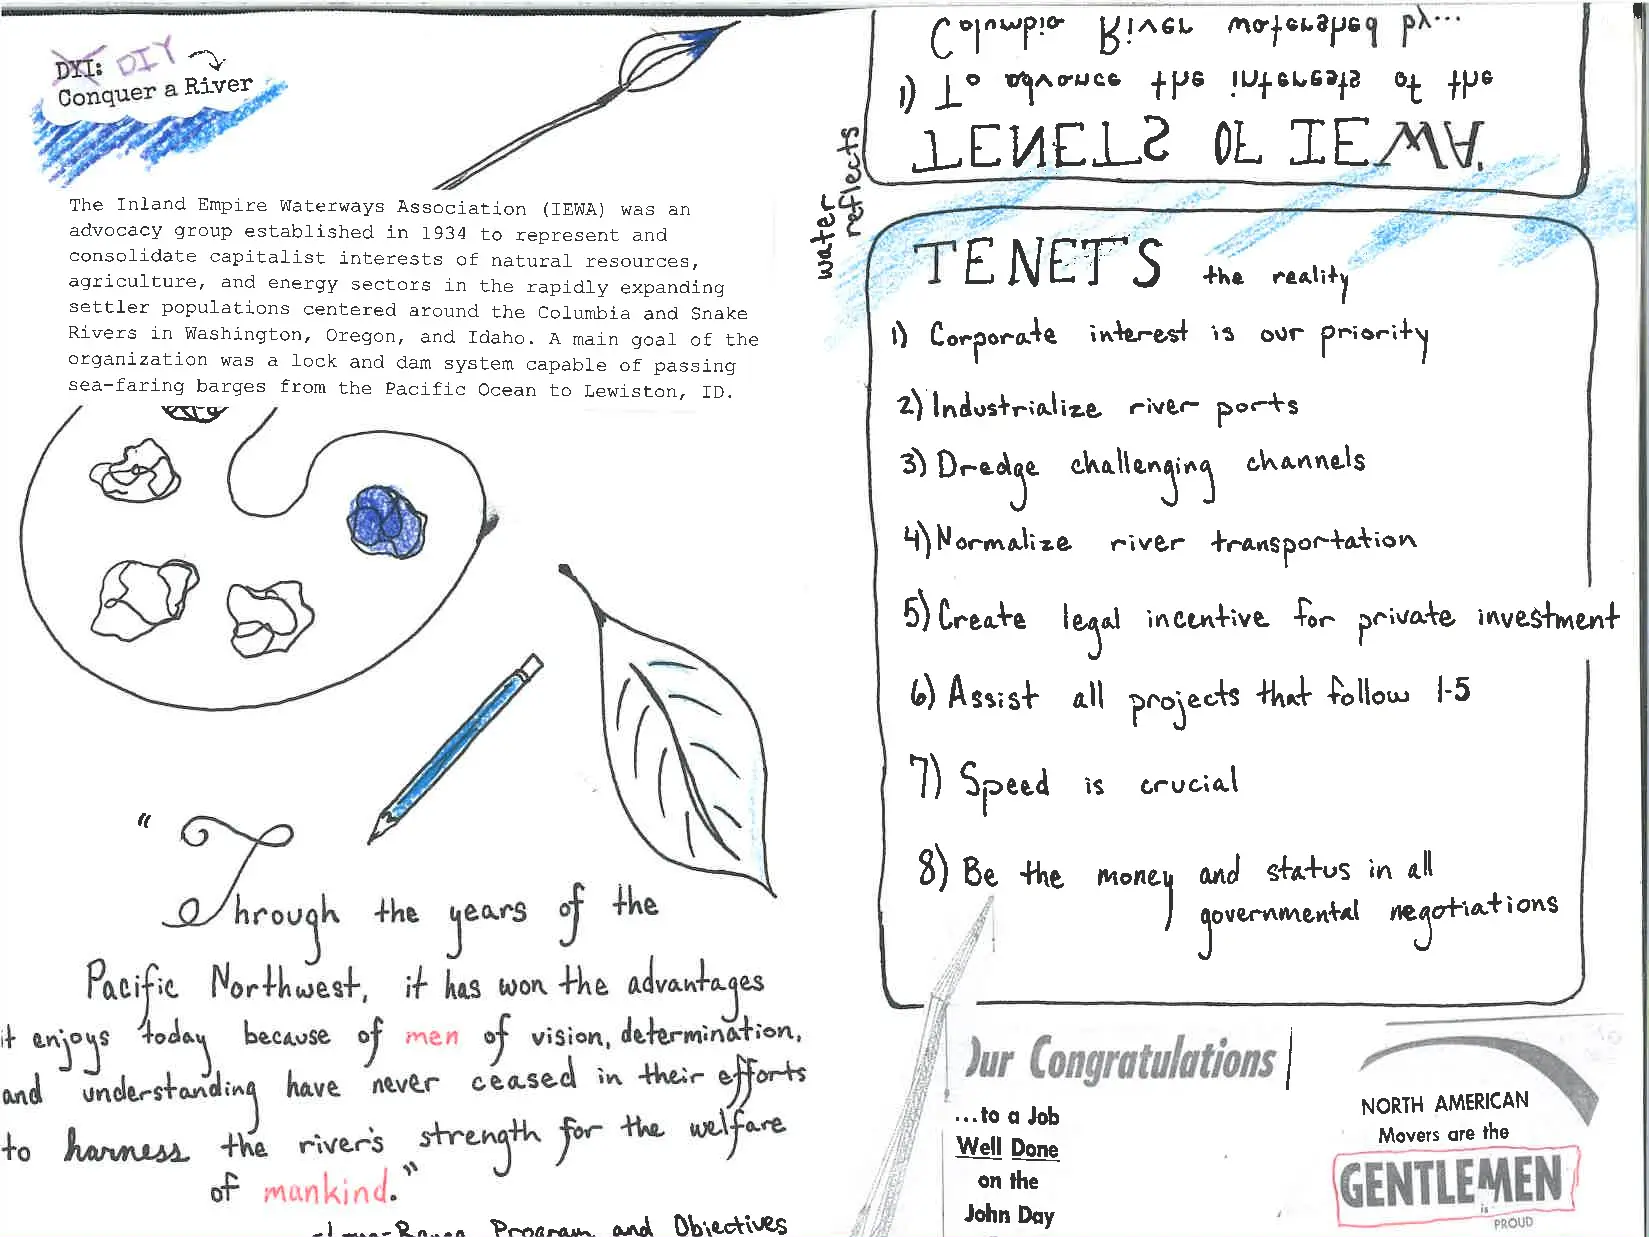 DII: DIY
Conquer a River
The Inland Empire Waterways Association (IEWA) was an
advocacy group established in 1934 to represent and
consolidate capitalist interests of natural resources,
agriculture, and energy sectors in the rapidly expanding
settler populations centered around the Columbia and Snake
Rivers in Washington, Oregon, and Idaho. A main goal of the
organization was a lock and dam system capable of passing
sea-faring barges from the Pacific Ocean to Lewiston, ID.
"Through the years of the
Pacific Northwest, it has won the advantages
it enjoys today because of men of vision, determination,
and understanding have never ceased in their efforts
to harness the river's strength for the welfare
of mankind."
-Long-Range Program and Objectives
TENETS OF IEWA
1) To advance the interests of the
Columbia River watershed by...
water
reflects
TENETS the reality
1) Corporate interest is our priority
2) Industrialize river ports
3) Dredge challenging channels
4) Normalize river transportation
5) Create legal incentive for private investment
6) Assist all projects that follow 1-5
7) Speed is crucial
8) Be the money and status in all
governmental negotiations
Our Congratulations
...to a Job
Well Done
on the
John Day
NORTH AMERICAN
Movers are the
GENTLEMEN
is
PROUD